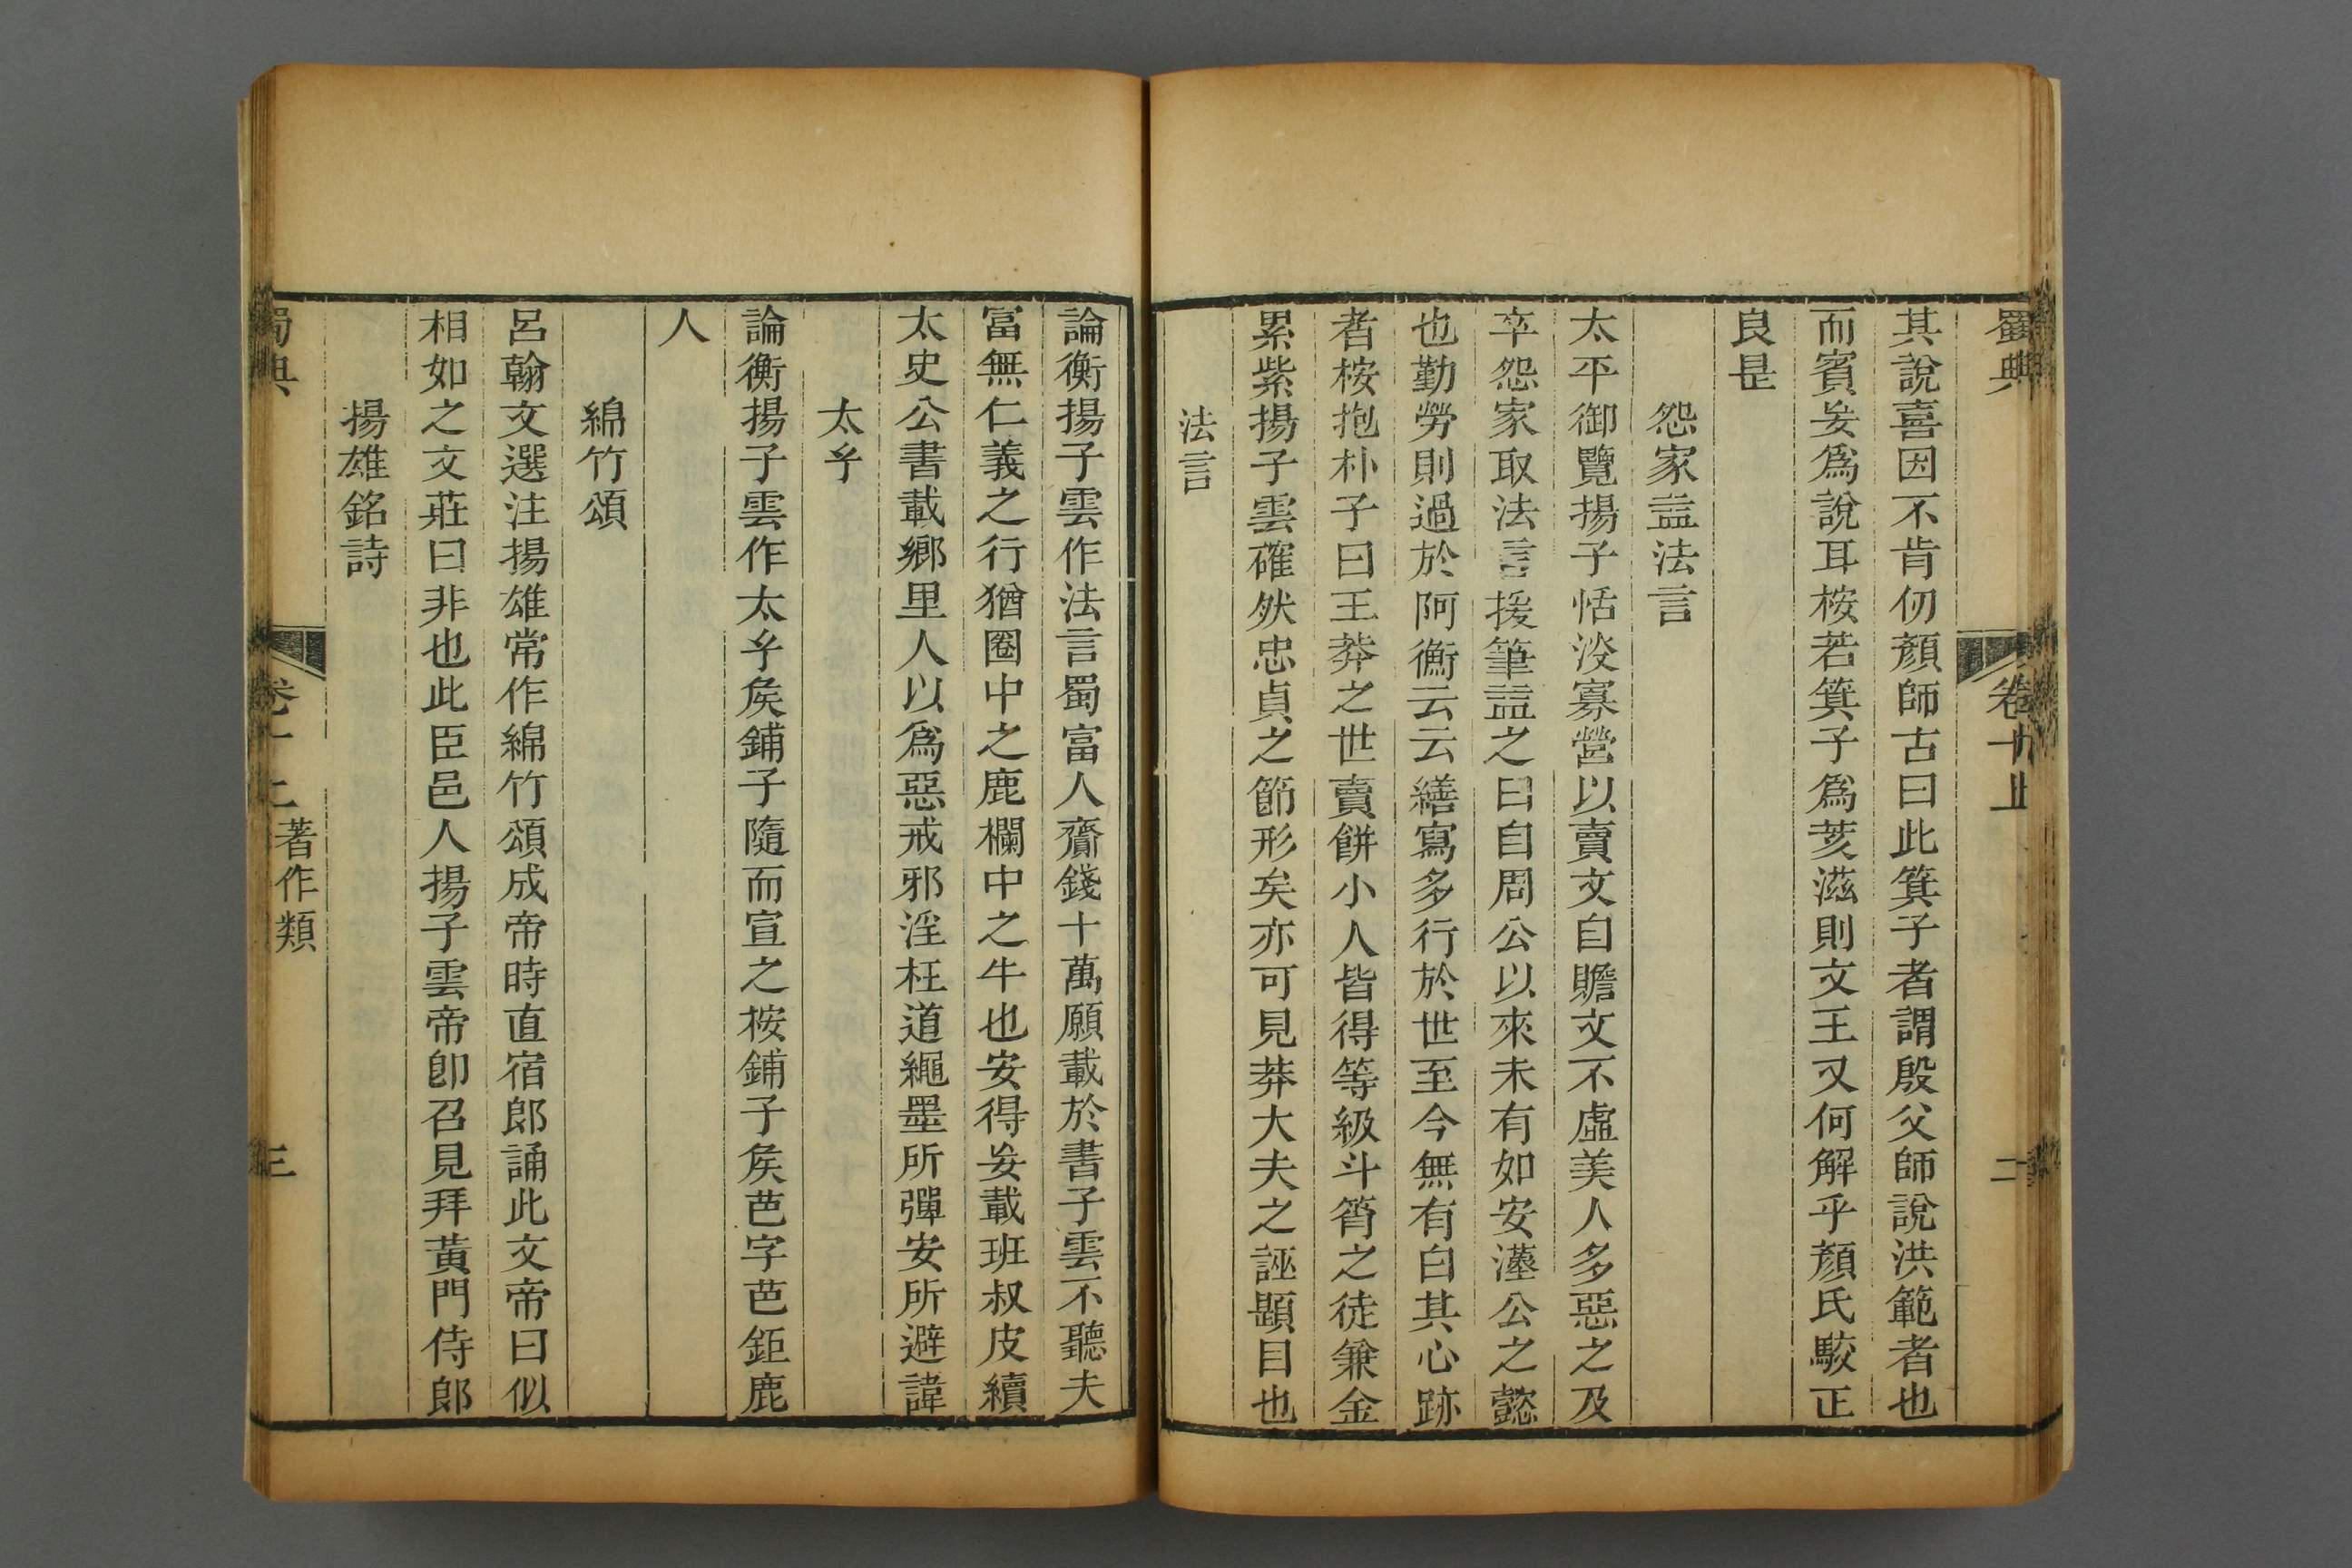 蜀典
卷十上
二
其說喜因不肯仞顏師古曰此箕子者謂殷父師說洪範者也
而賓妄為說耳桉若箕子為荄滋則文王又何解乎顏氏駮正
良是
怨家益法言
太平御覽揚子恬淡寡營以賣文自贍文不虛美人多惡之及
卒怨家取法言援筆益之曰自周公以來未有如安漢公之懿
也勤勞則過於阿衡云云繕寫多行於世至今無有白其心跡
者桉抱朴子曰王莽之世賣餅小人皆得等級斗筲之徒兼金
累紫揚子雲確然忠貞之節形矣亦可見莽大夫之誣題目也
法言
論衡揚子雲作法言蜀富人齎錢十萬願載於書子雲不聽夫
富無仁義之行猶圈中之鹿欄中之牛也安得妄載班叔皮續
太史公書載鄉里人以為惡戒邪淫枉道繩墨所彈安所避諱
太𤣥
論衡揚子雲作太𤣥矦鋪子隨而宣之桉鋪子矦芭字芭鉅鹿
人
綿竹頌
呂翰文選注揚雄常作綿竹頌成帝時直宿郎誦此文帝曰似
相如之文莊曰非也此臣邑人揚子雲帝卽召見拜黃門侍郎
揚雄銘詩
蜀典
卷十上
著作類
三